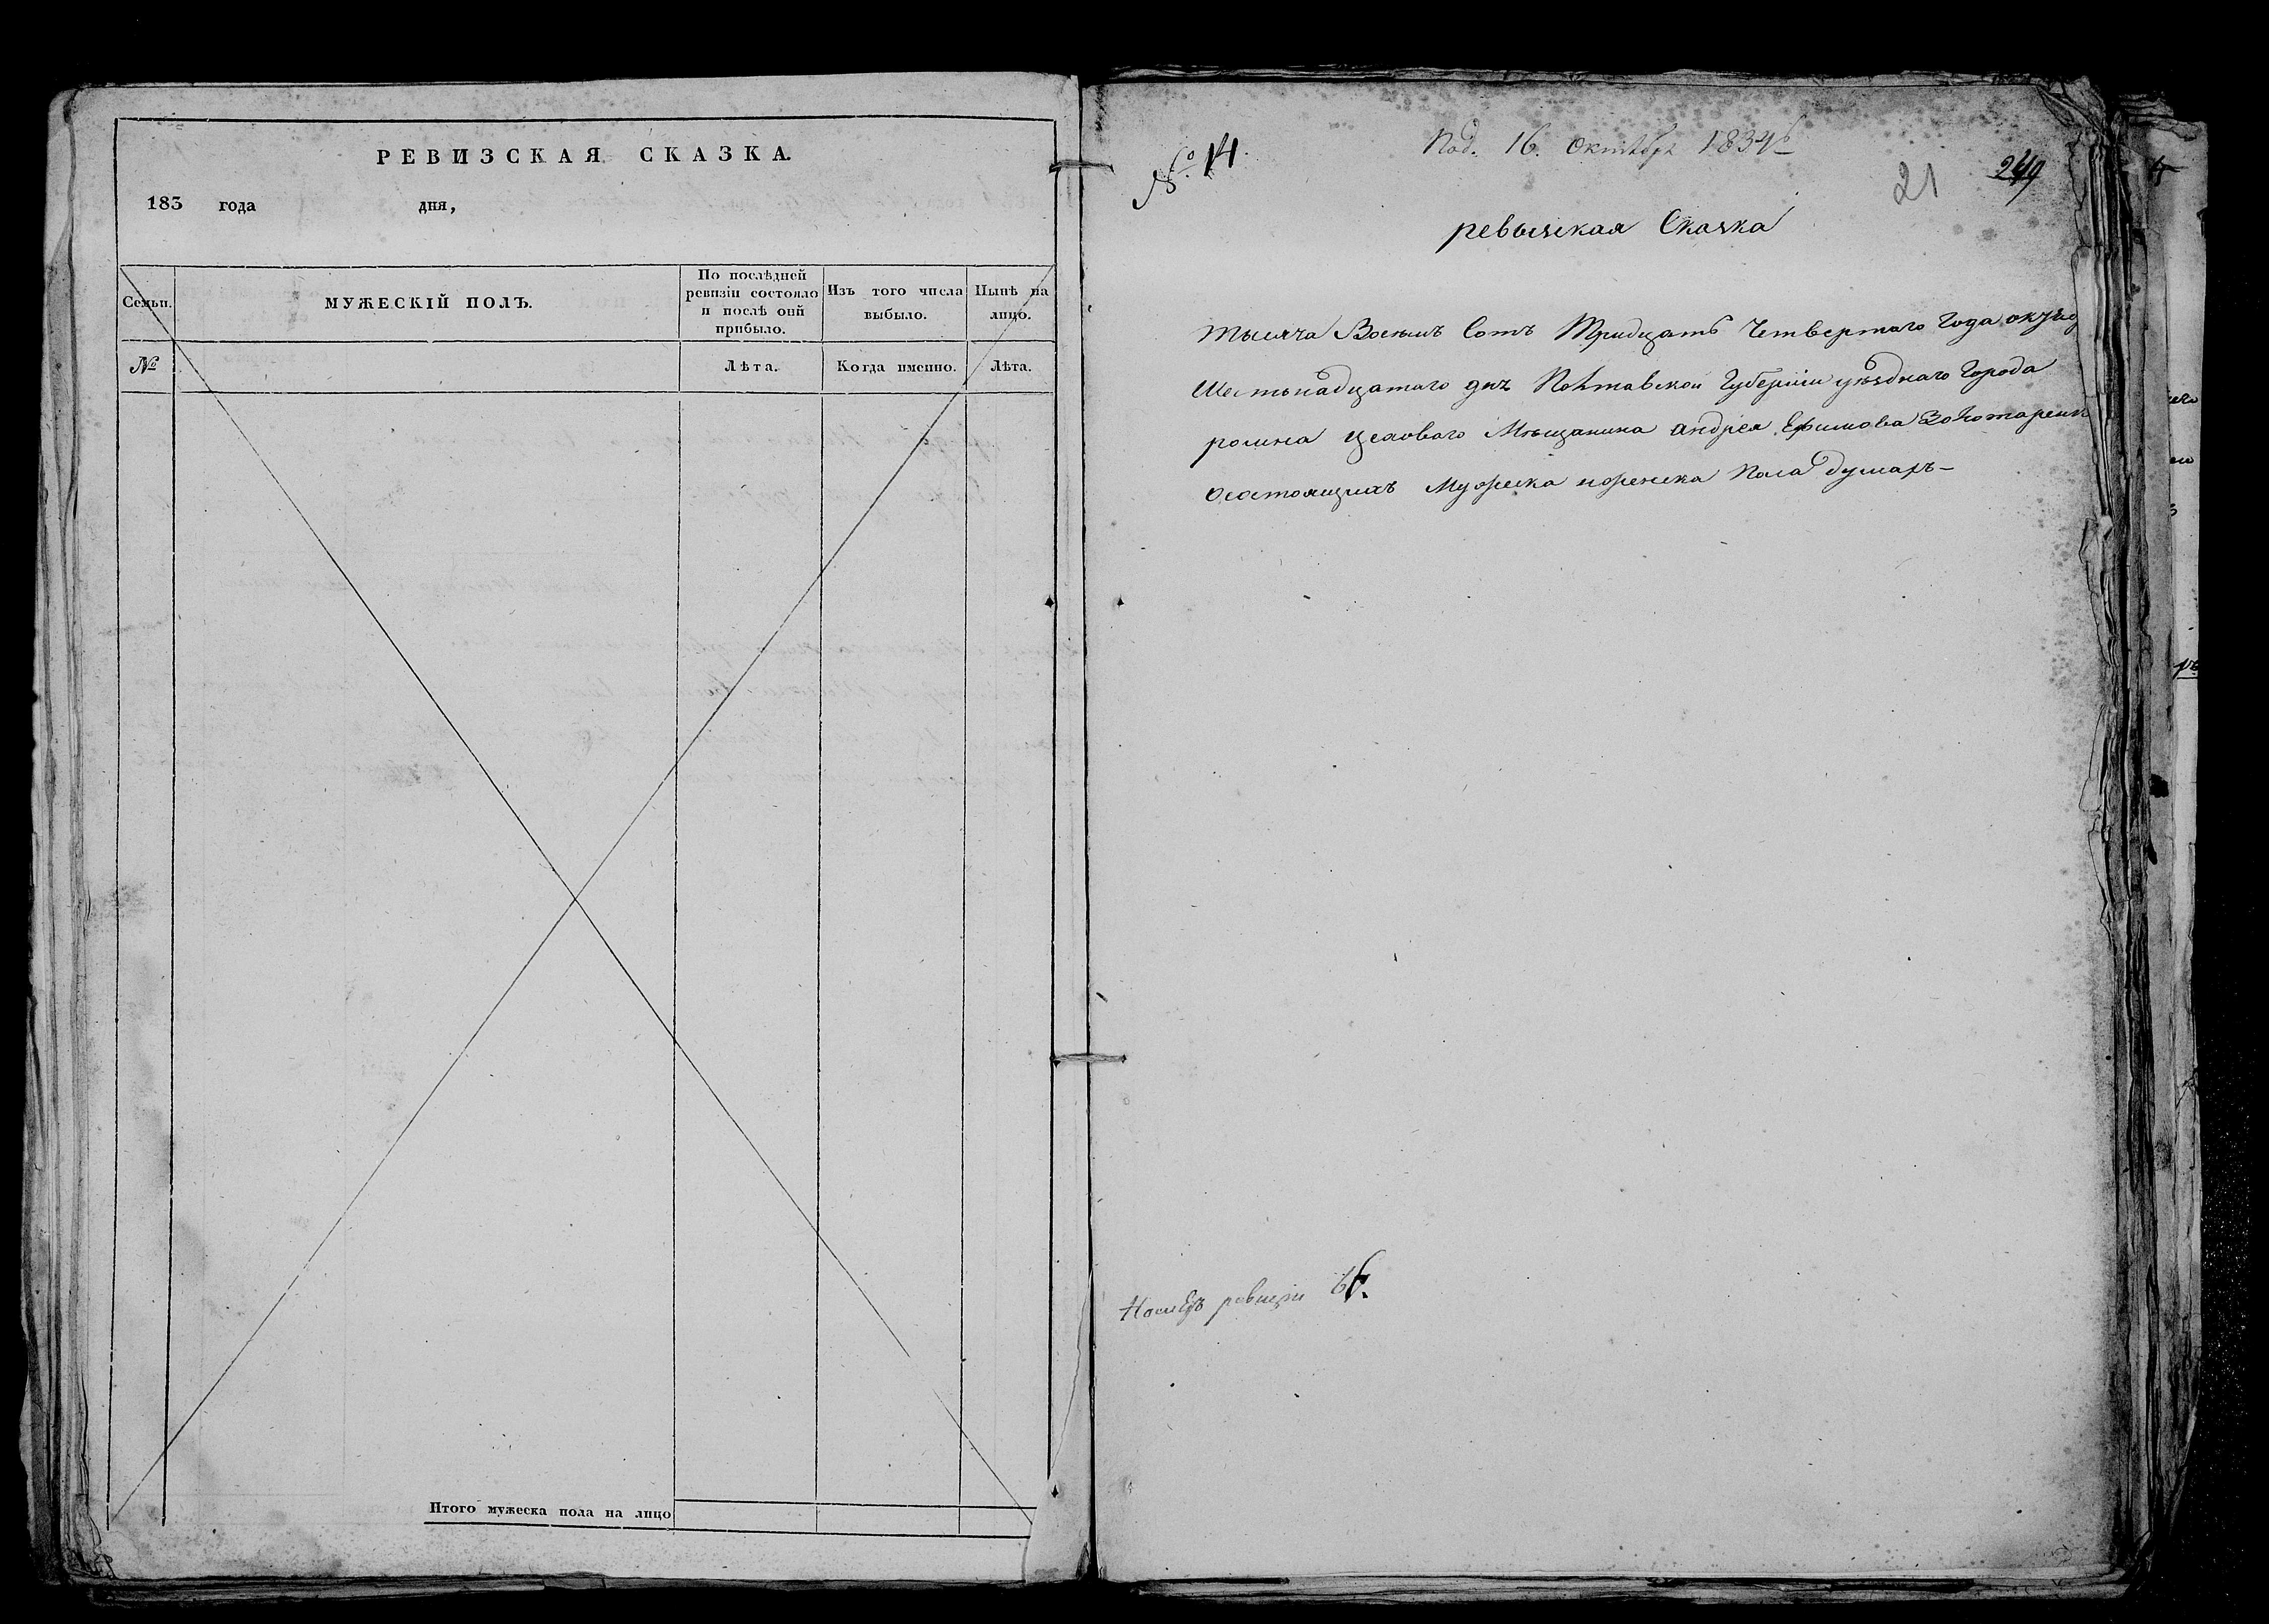 РЕВИЗСКАЯ СКАЗКА.
183 года дня,
Семьи.
МУЖЕСКІЙ ПОЛЪ.
По послѣдней
ревизіи состояло
и послѣ оной
прибыло.
Изъ того числа
выбыло.
Нынѣ на
лицо.
№
Лѣта.
Когда именно.
Лѣта.
Итого мужеска пола на лицо
№ 14.
Под. 16. Октября 1834
21
249
ревызская Сказка
тысяча Восемь Сотъ Тридцать Четвертаго Года
Шестьнадцатаго дня Полтавской Губерніи уѣзднаго Города
ромна цеховаго Мѣщанина андрея Ефимова Золотаренк
Осостоящихъ Мужеска иженска Пола душахъ-
ревизіи